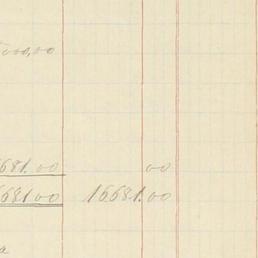 000,00
681.00 00
681 00 16681.00
a